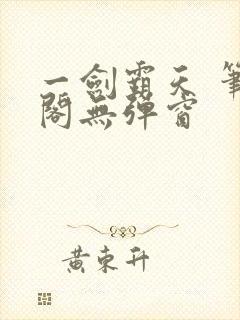 一劍霸天 筆
閣無彈窗
黃東升